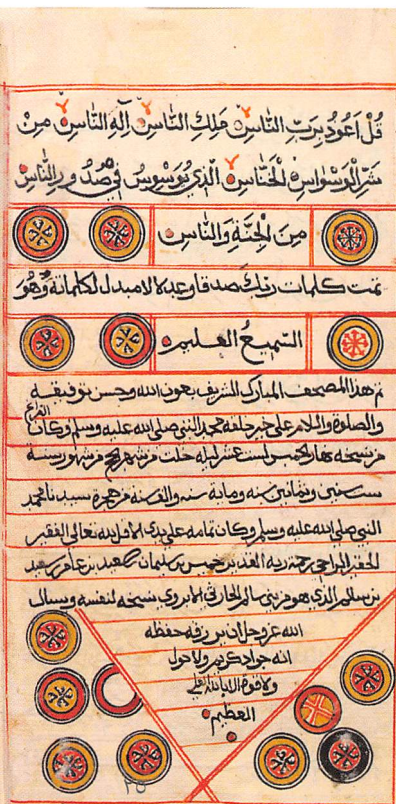 قُلْ اَعُوذُ بِرَبِّ النَّاسِ مَلِكِ النَّاسِ اِلٰهِ النَّاسِ مِنْ
شَرِّ الْوَسْوَاسِ الْخَنَّاسِ الَّذِي يُوَسْوِسُ فِي صُدُورِ النَّاسِ
مِنَ الْجِنَّةِ وَالنَّاسِ
تمت كلمات ربك صدقا وعدلا لا مبدل لكلماته وَهُوَ
السَّمِيعُ الْعَلِيمُ
تم هذا المصحف المبارك الشريف بعون الله وحسن توفيقه
والصلوة والسلام على خير خلقه محمد النبي صلى الله عليه وسلم وكان الفراغ
من نسخه نهار الخميس لست عشر ليلة خلت من شهر من شهور سنة
ست سنين وثمانين سنه وماية سنه والف سنه من هجرة سيدنا محمد
النبي صلى الله عليه وسلم وكان تمامه على يدي الاقل لله تعالى الفقير
الحقير الراجي رحمة ربه بن خميس بن سليمان بن سعيد بن عامر بن سعيد
بن سالم الذي هو من بني سالم نسخه لنفسه ويسال
الله عز وجل ان يرزقه حفظه
انه جواد كريم ولا حول
ولا قوة الا بالله العلي
العظيم